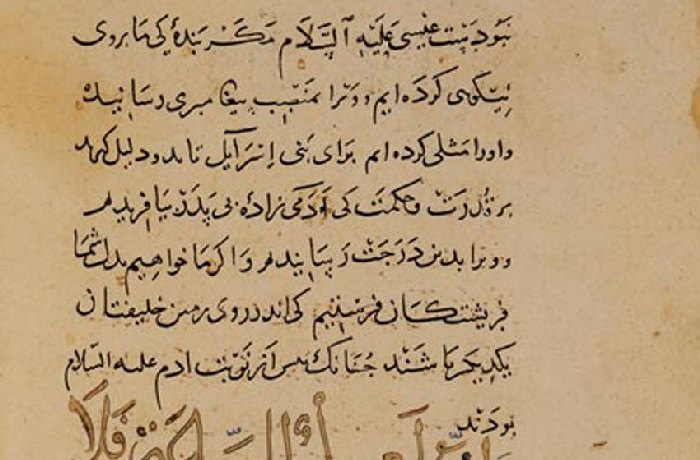 نبودست عیسی علیه السلام مگر بندهٔ کی ما بروی
نیکوی کرده ایم و ورا بمنصب پیغامبری رسانیده
و اورا مثلی کرده ایم برای بنی اسرآیل تا بدو دلیل کیرند
بر قدرت و حکمت کی آدمی زادهٔ بی پدر بیافریدیم
و ورا بدین درجت رسانیدیم و اکر ما خواهیم بدل شما
فریشتکان فرستیم کی اندر روی زمین خلیفتان
یکدیکر باشند چنانک پس از نوبت ادم علیه السلام
بودند